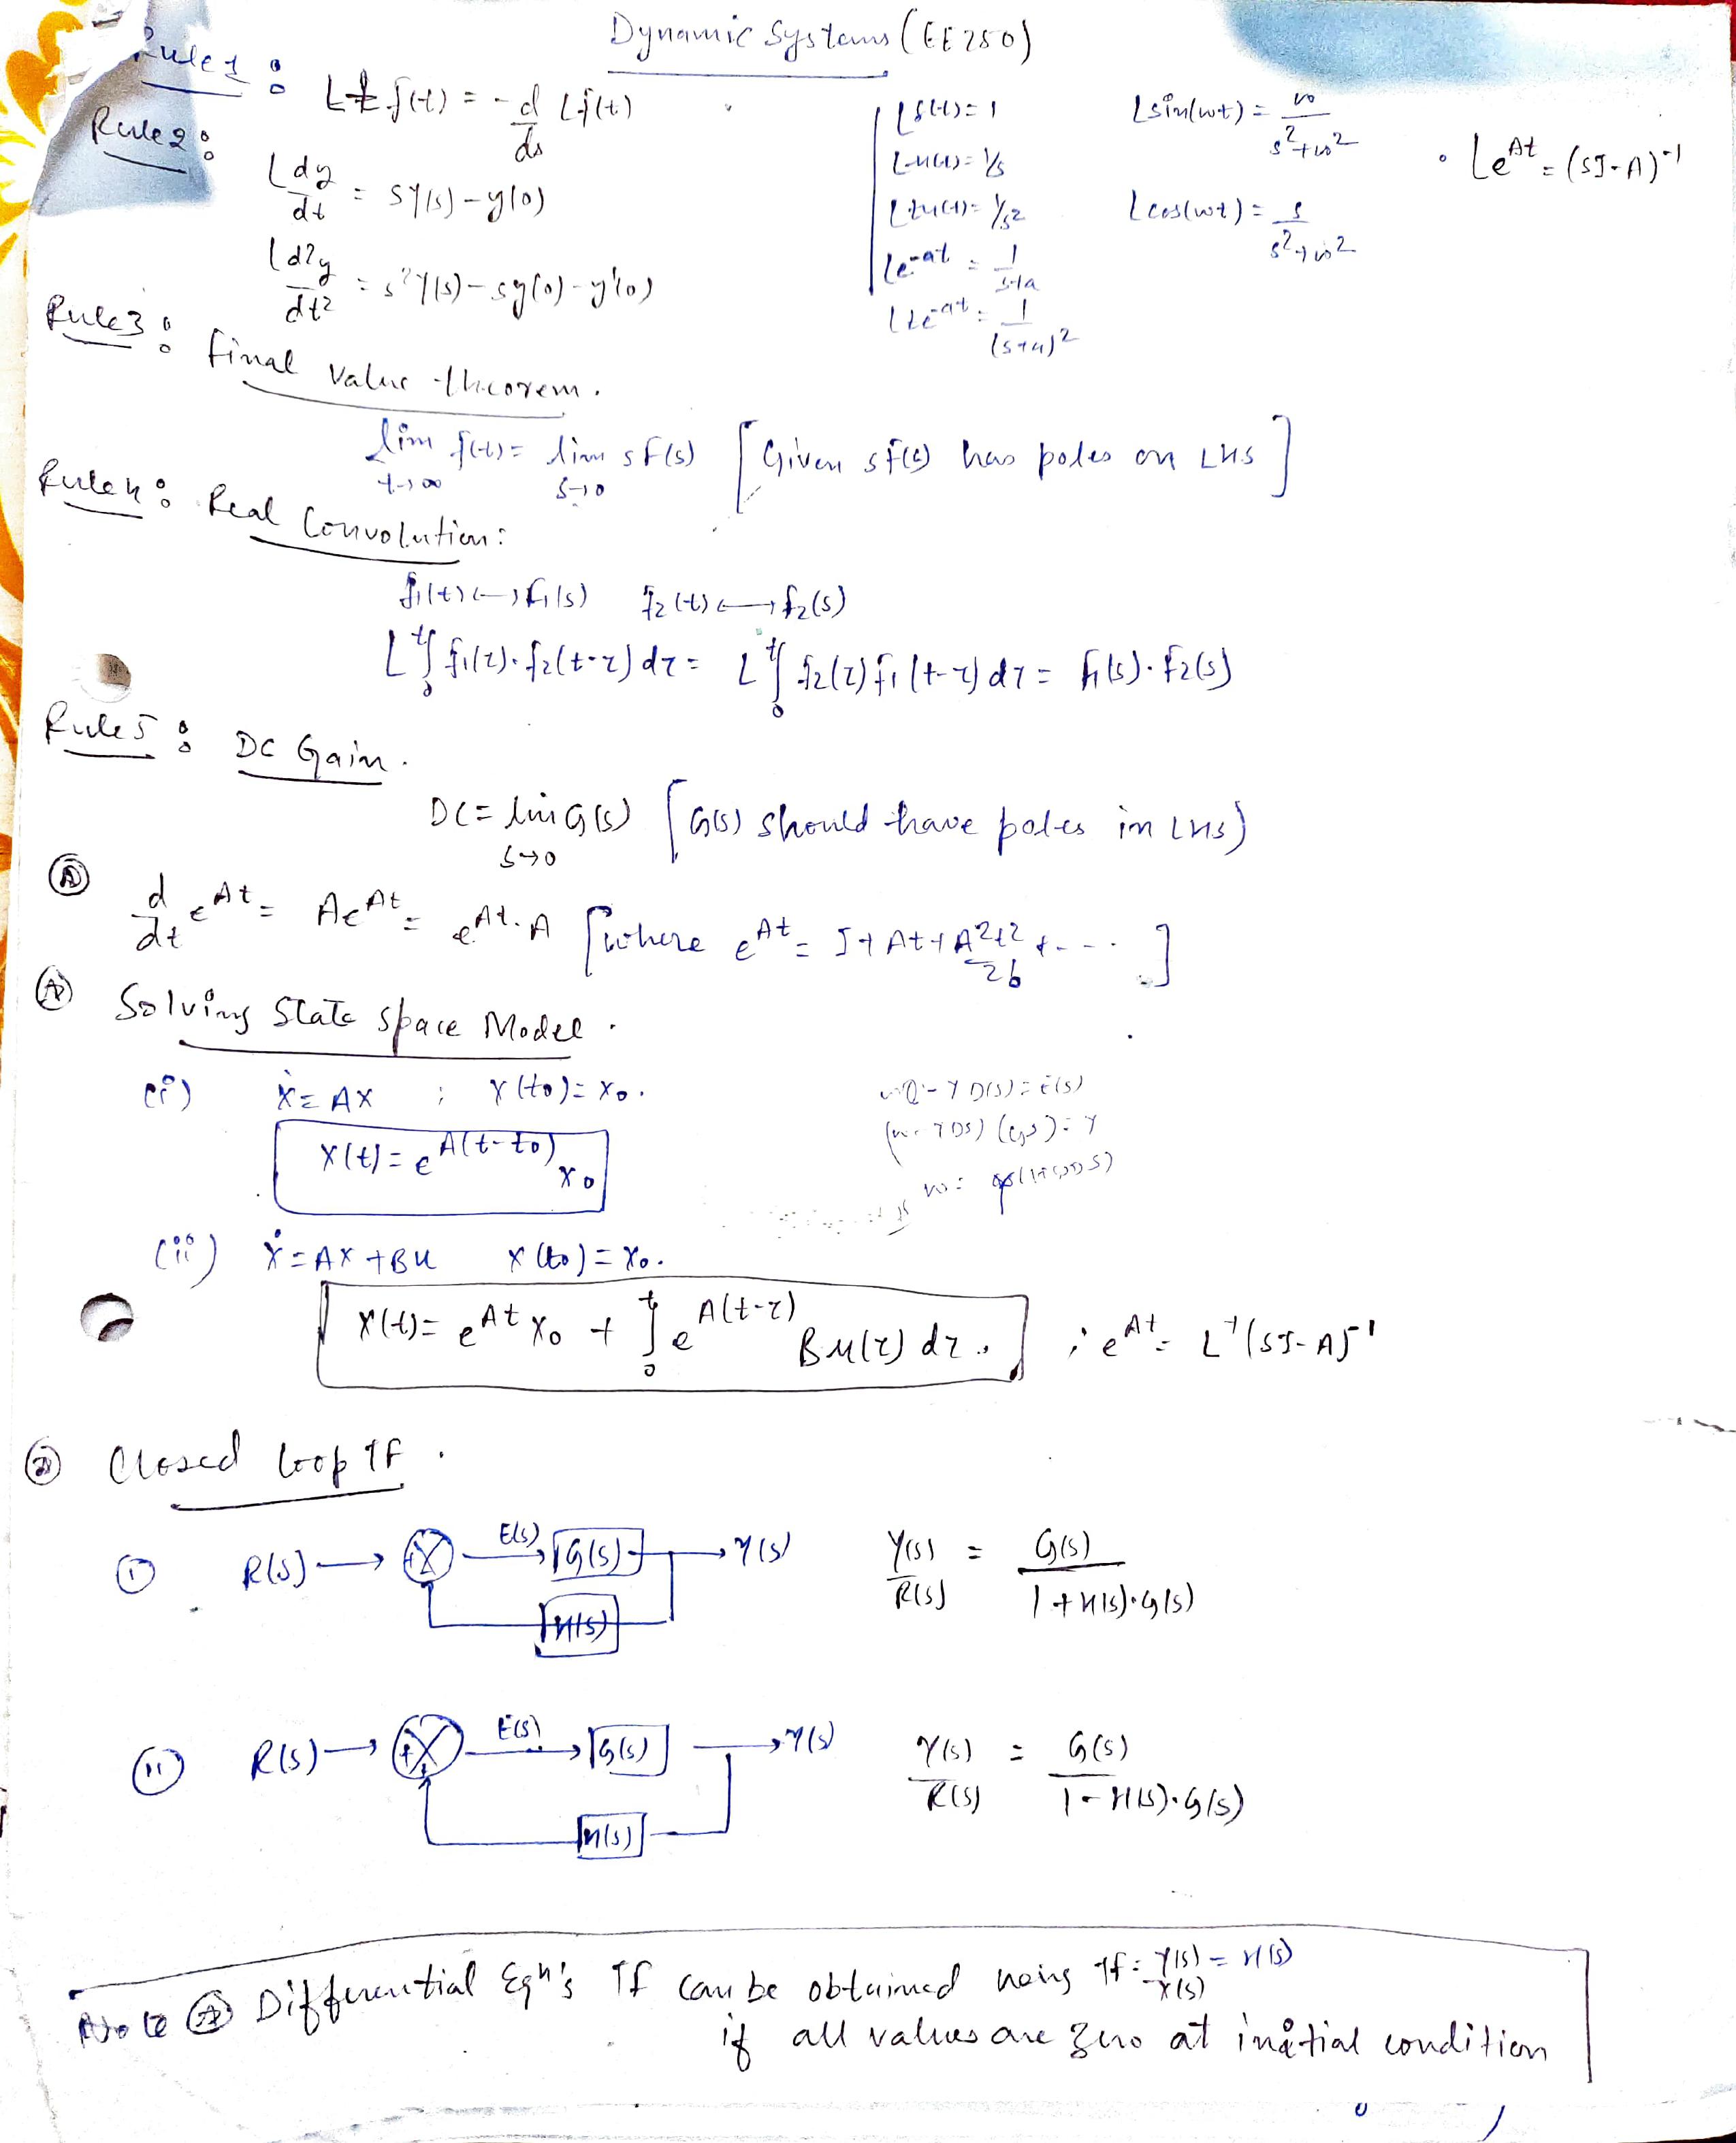 Dynamic Systems (EE250)
Rule 1:
L t f(t) = - d/ds L f(t)
Lδ(t) = 1
L sin(wt) = w/(s²+w²)
L e^At = (sI-A)⁻¹
Rule 2:
L dy/dt = sY(s) - y(0)
L u(t) = 1/s
L tu(t) = 1/s²
L cos(wt) = s/(s²+w²)
L d²y/dt² = s²Y(s) - sy(0) - y'(0)
L e^-at = 1/(s+a)
L te^-at = 1/(s+a)²
Rule 3: Final Value theorem.
lim t→∞ f(t) = lim s→0 sF(s) [Given sF(s) has poles on LHS]
Rule 4: Real Convolution:
f1(t) ↔ F1(s) f2(t) ↔ F2(s)
L ∫₀ᵗ f1(τ).f2(t-τ)dτ = L ∫₀ᵗ f2(τ)f1(t-τ)dτ = F1(s).F2(s)
Rule 5: DC Gain.
DC = lim s→0 G(s) [G(s) should have poles in LHS)
d/dt e^At = Ae^At = e^At.A [where e^At = I + At + A²t²/2! + - - - ]
Solving State Space Model.
(i) Ẋ = AX ; X(t0) = X0.
X(t) = e^A(t-t0) X0
(ii) Ẋ = AX + BU X(t0) = X0.
X(t) = e^At X0 + ∫₀ᵗ e^A(t-τ) Bu(τ) dτ. ; e^At = L⁻¹(sI-A)⁻¹
Closed loop TF.
(i) R(s) → E(s) G(s) → Y(s)
H(s)
Y(s)/R(s) = G(s)/(1+H(s).G(s))
(ii) R(s) → E(s) → G(s) → Y(s)
H(s)
Y(s)/R(s) = G(s)/(1-H(s).G(s))
Note Differential Eqn's TF can be obtained using TF: Y(s)/X(s) = H(s)
if all values are zero at initial condition